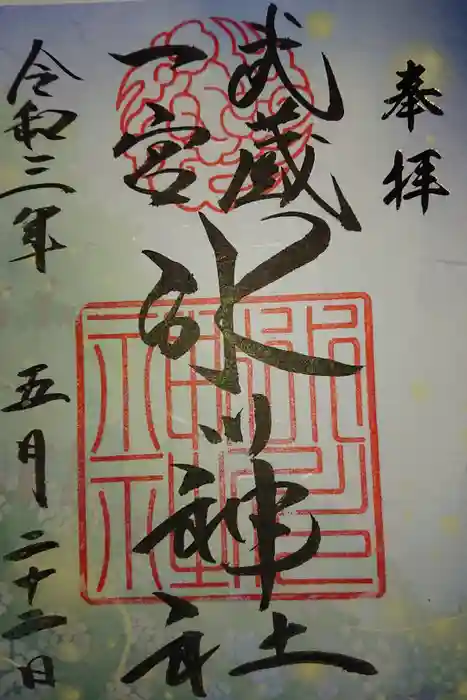 奉拝
武蔵
一宮
氷川神社
令和三年 五月二十二日